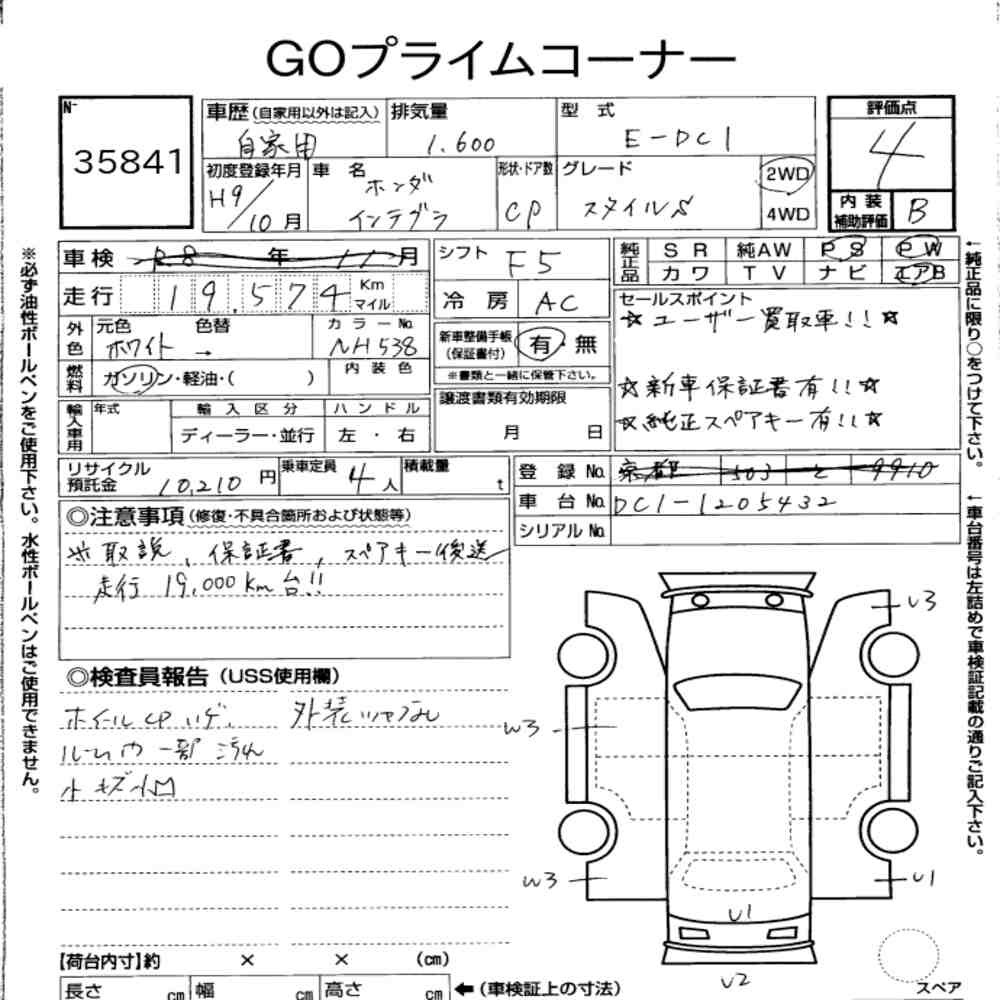 GOプライムコーナー
N- 35841
車歴(自家用以外は記入) 自家用
排気量 1.600
型式 E-DC1
評価点 4
初度登録年月 H9/10月
車名 ホンダ インテグラ
形状・ドア数 CP
グレード スタイルS
2WD
4WD
内装補助評価 B
車検 R8年11月
シフト F5
純正品 SR 純AW PS PW
カワ TV ナビ エアB
走行 19,574 Km マイル
冷房 AC
セールスポイント
☆ユーザー買取車!!☆
☆新車保証書有!!☆
☆純正スペアキー有!!☆
外色 元色 ホワイト → 色替
カラーNo. NH538
新車整備手帳(保証書付) 有・無
※書類と一緒に保管下さい。
燃料 ガソリン・軽油・( )
内装色
輸入車用 年式
輸入区分 ディーラー・並行
ハンドル 左・右
譲渡書類有効期限 月 日
リサイクル預託金 10,210円
乗車定員 4人
積載量 t
登録No. 503 と 9910
車台No. DC1-1205432
シリアルNo.
◎注意事項(修復・不具合箇所および状態等)
※取説、保証書、スペアキー後送
走行19,000km台!!
◎検査員報告(USS使用欄)
ホイールCPハゲ. 外装ツヤなし
ルーム内一部汚れ
小キズ小凹
U3
W3
W3
U1
U1
U2
スペア
【荷台内寸】約 × × (cm)
長さ cm 幅 cm 高さ cm ←(車検証上の寸法)
※必ず油性ボールペンをご使用下さい。水性ボールペンはご使用できません。
←純正品に限り○をつけて下さい。
←車台番号は左詰めで車検証記載の通りご記入下さい。